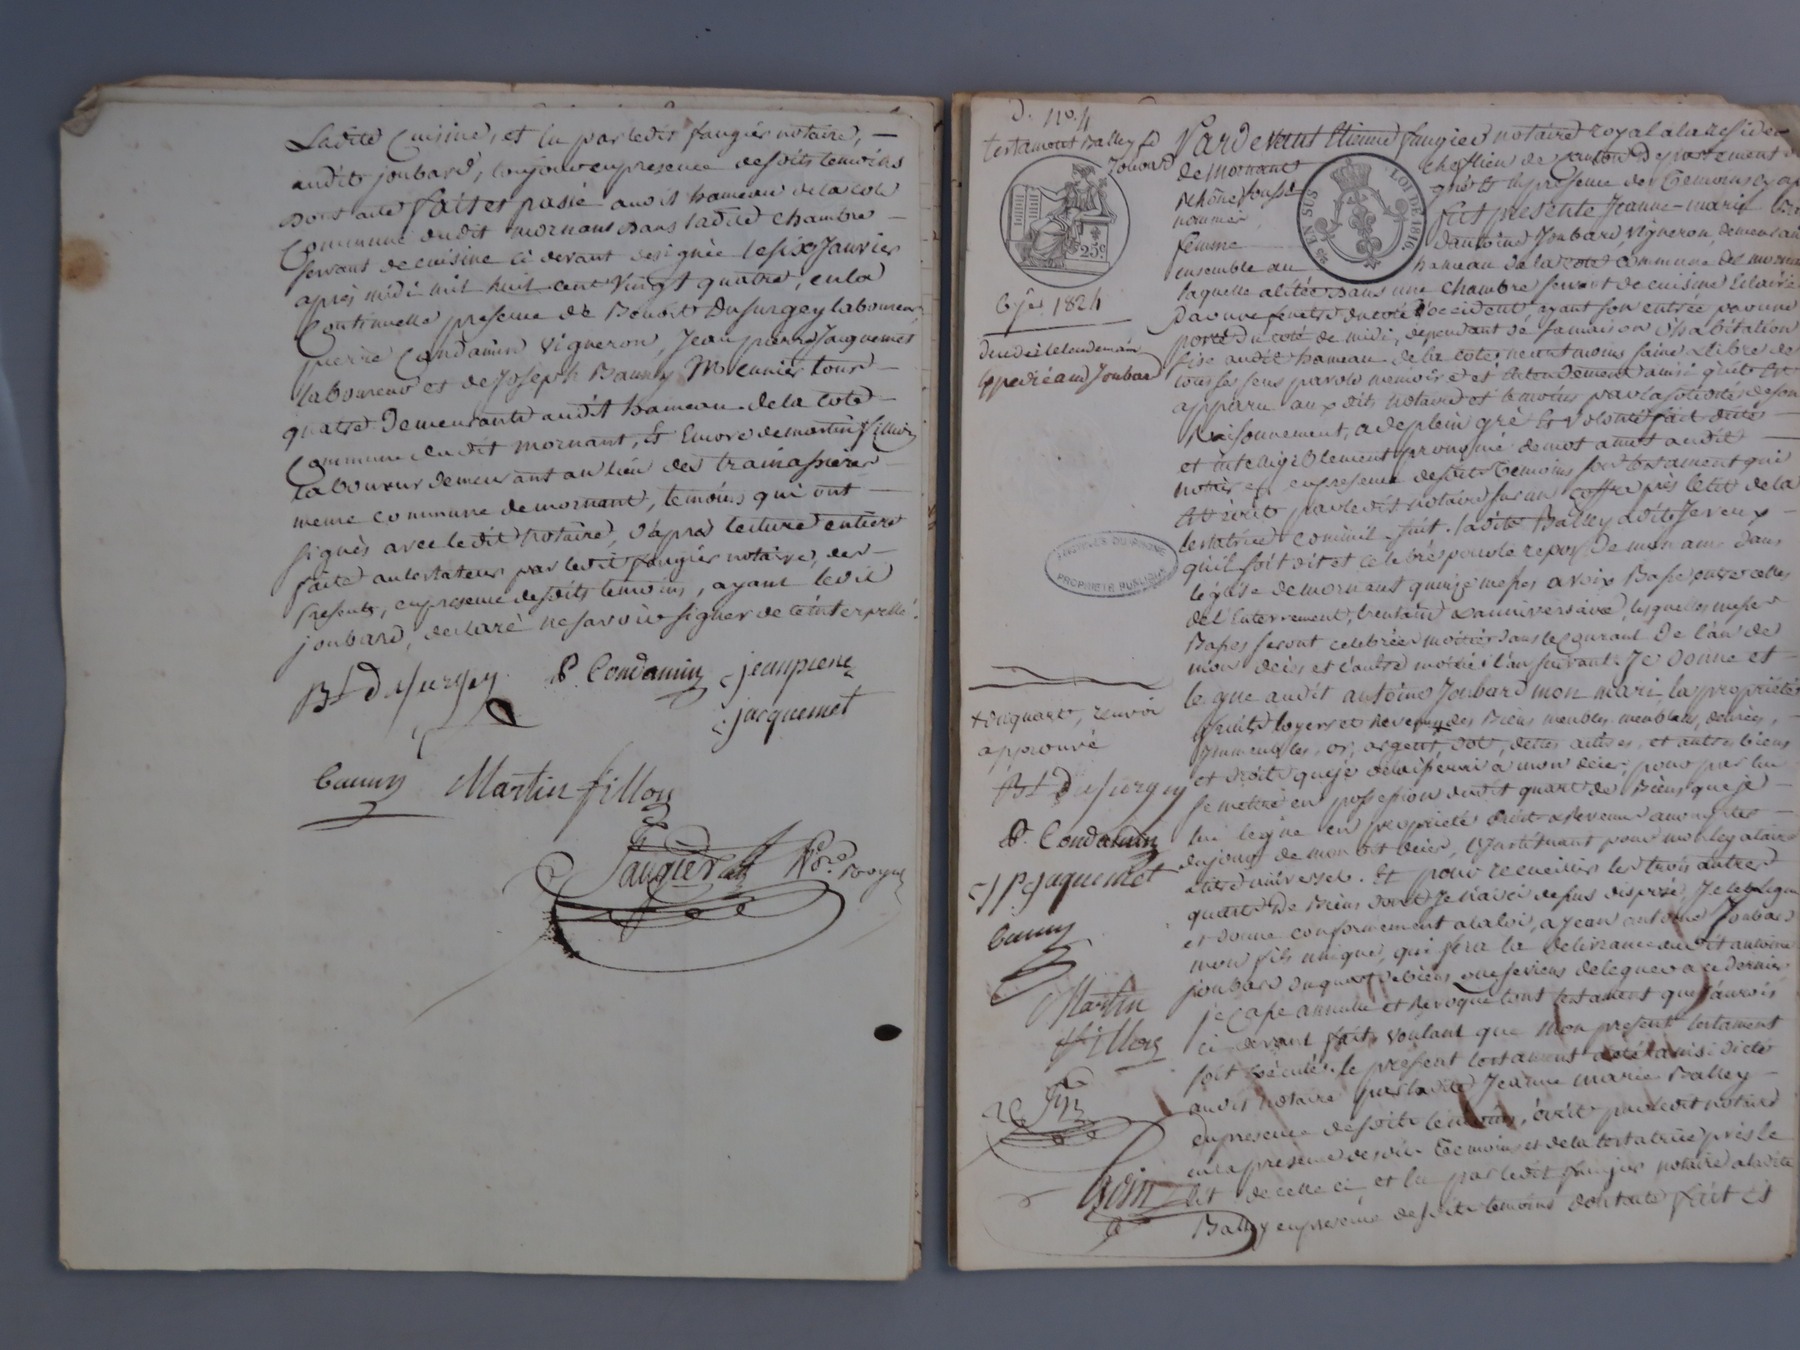 Ladite Cuisine, et lu par ledit faugier notaire, —
audit joubard, toujours en presence desdits temoins
dont acte fait et passé audit hameau de la cote
Commune dudit mornant dans ladite chambre —
servant de cuisine ci devant designée le six Janvier
après midi mil huit cent vingt quatre, en la
Continuelle presence de Benoit Dusurgey laboureur
pierre Condamin vigneron, Jean pierre Jacquemet
laboureur et de Joseph Bauny Meunier tous —
quatre Demeurants audit hameau de la cote —
Commune dudit mornant, Et Encore de martin fillion
laboureur demeurant au lieu des trainassieres —
meme commune de mornant, temoins qui ont —
signés avec le dit Notaire, d'après lecture entiere
faite au testateur par ledit faugier notaire, des —
presents, en presence desdits temoins, ayant ledit
joubard, declaré ne savoir signer de ce interpellé.
Bt Dusurgey P. Condamin jean piere
jacquemet
bauny Martin fillon
faugier Nre Royal
D. No. 4
testament Balley fe
Joubard
6 jer 1824
Expedié audit Joubard
Pardevant Etienne faugier notaire royal a la residence
de Mornant chef lieu de canton Departement du
Rhône soussigné Et en presence des temoins cy après
nommés fut presente Jeanne-marie
femme d'antoine Joubard, vigneron, demeurant
ensemble au hameau de la cote Commune de mornant
laquelle alitée dans une chambre servant de cuisine Eclairée
par une fenetre du coté d'occident, ayant son entrée par une
porte du coté de midi, dependant de sa maison d'habitation
sise audit hameau de la cote neantmoins saine & libre de
tous ses sens parole memoire et Entendement ainsi qu'il est
apparu aux dits notaire et temoins par la solidité de son
Raisonnement, a de plein gré Et volonté fait dicté —
et intelligiblement prononcé de mot a mot audit —
notaire en presence desdits temoins son testament qui
a été Ecrit par ledit notaire sur un coffre près le lit de la
testatrice comm'il suit. ladite Balley a dit Je veux —
qu'il soit dit et celebrés pour le repos De mon ame dans
l'eglise de mornant quinze messes a voix Basse, outre celles
de l'Enterrement, trentaine & anniversaire, lesquelles messes
Basses seront celebrées moitié dans le Courant De l'an de
mon decès et l'autre moitié l'an suivant. Je donne et —
legue audit antoine Joubard mon mari, la proprieté
fruits loyers et Revenus des Biens meubles, meublans, denrées, —
Immeubles, or, argent, dot, dettes actives, et autres biens
et droits que je delaisserai a mon decès; pour par lui
se mettre en possession dudit quart de Biens que je —
lui legue en proprieté droits & Revenus a compter —
du jour de mon dit decès, l'Instituant pour mon legataire
a titre universel. Et pour recueillir les trois autres
quarts De Biens dont Je n'ai ci dessus disposé Je les legue
et donne conformement a la loi, a jean antoine Joubard
mon fils unique, qui fera la delivrance audit antoine
joubard du quart de biens que je viens de leguer a ce dernier
je casse annulle et Revoque tout testament que j'aurois
ci devant fait, voulant que mon present testament
soit Executé. le present testament a été ainsi dicté
audit notaire par ladite Jeanne marie Balley —
en presence desdits temoins, écrit par ledit notaire
en la presence desdits temoins et de la testatrice près le
lit de celle ci, et lu par ledit faugier notaire a ladite
Balley en presence desdits temoins dont acte fait Et
+ du quart, renvoi
approuvé
Bt Dusurgey
P. Condamin
J P. Jaquemet
bauny
Martin
fillon
25 C EN SUS
LOI DE 1816
25c
ARCHIVES DU RHONE
PROPRIETE PUBLIQUE